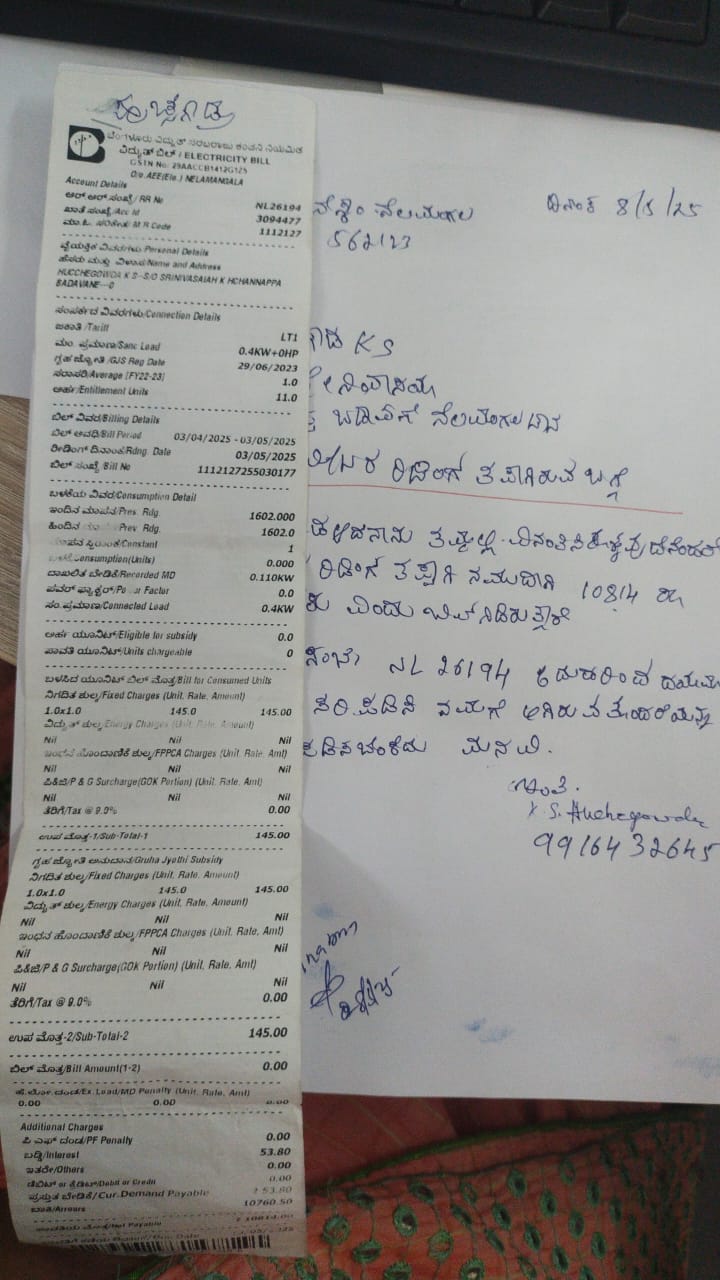 ಹುಚ್ಚೇಗೌಡ
ಬೆಂಗಳೂರು ವಿದ್ಯುತ್ ಸರಬರಾಜು ಕಂಪನಿ ನಿಯಮಿತ
ವಿದ್ಯುತ್ ಬಿಲ್ / ELECTRICITY BILL
GSTN No: 29AACCB1412G1Z5
O/o AEE(Ele.) NELAMANGALA
Account Details
ಆರ್.ಆರ್.ಸಂಖ್ಯೆ/ RR No NL26194
ಖಾತೆ ಸಂಖ್ಯೆ/Acc Id 3094477
M R Code 1112127
ವೈಯಕ್ತಿಕ ವಿವರಗಳು/Personal Details
ಹೆಸರು ಮತ್ತು ವಿಳಾಸ/Name and Address
HUCCHEGOWDA K S--S/O SRINIVASAIAH K HCHANNAPPA
BADAVANE--0
ಸಂಪರ್ಕದ ವಿವರಗಳು/Connection Details
ಜಕಾತಿ /Tariff LT1
ಮಂ. ಪ್ರಮಾಣ/Sanc Load 0.4KW+0HP
ಗೃಹ ಜ್ಯೋತಿ /GJS Reg Date 29/06/2023
ಸರಾಸರಿ/Average [FY22-23] 1.0
ಅರ್ಹ/Entitlement Units 11.0
ಬಿಲ್ ವಿವರ/Billing Details
ಬಿಲ್ ಅವಧಿ/Bill Period 03/04/2025 - 03/05/2025
ರೀಡಿಂಗ್ ದಿನಾಂಕ/Rdng. Date 03/05/2025
ಬಿಲ್ ಸಂಖ್ಯೆ/Bill No 1112127255030177
ಬಳಕೆಯ ವಿವರ/Consumption Detail
ಇಂದಿನ ಮಾಪನ/Pres. Rdg. 1602.000
ಹಿಂದಿನ Prev. Rdg. 1602.0
ಮಾಪನ ಸ್ಥಿರಾಂಕ/Constant 1
ಬಳಕೆ/Consumption(Units) 0.000
ದಾಖಲಿತ ಬೇಡಿಕೆ/Recorded MD 0.110KW
ಪವರ್ ಫ್ಯಾಕ್ಟರ್/ Factor 0.0
ಸಂ.ಪ್ರಮಾಣ/Connected Load 0.4KW
ಅರ್ಹ ಯೂನಿಟ್/Eligible for subsidy 0.0
ಪಾವತಿ ಯೂನಿಟ್/Units chargeable 0
ಬಳಸಿದ ಯೂನಿಟ್ ಬಿಲ್ ಮೊತ್ತ/Bill for Consumed Units
ನಿಗದಿತ ಶುಲ್ಕ/Fixed Charges (Unit, Rate, Amount)
1.0x1.0 145.0 145.00
ವಿದ್ಯುತ್ ಶುಲ್ಕ/Energy Charges (Unit, Rate, Amount)
Nil Nil Nil
ಇಂಧನ ಹೊಂದಾಣಿಕೆ ಶುಲ್ಕ/FPPCA Charges (Unit, Rate, Amt)
Nil Nil Nil
ಪಿ&ಜಿ/P & G Surcharge(GOK Portion) (Unit, Rate, Amt)
Nil Nil Nil
ತೆರಿಗೆ/Tax @ 9.0% 0.00
ಉಪ ಮೊತ್ತ-1/Sub-Total-1 145.00
ಗೃಹ ಜ್ಯೋತಿ ಅನುದಾನ/Gruha Jyothi Subsidy
ನಿಗದಿತ ಶುಲ್ಕ/Fixed Charges (Unit, Rate, Amount)
1.0x1.0 145.0 145.00
ವಿದ್ಯುತ್ ಶುಲ್ಕ/Energy Charges (Unit, Rate, Amount)
Nil Nil Nil
ಇಂಧನ ಹೊಂದಾಣಿಕೆ ಶುಲ್ಕ/FPPCA Charges (Unit, Rate, Amt)
Nil Nil Nil
ಪಿ&ಜಿ/P & G Surcharge(GOK Portion) (Unit, Rate, Amt)
Nil Nil Nil
ತೆರಿಗೆ/Tax @ 9.0% 0.00
ಉಪ ಮೊತ್ತ-2/Sub-Total-2 145.00
ಬಿಲ್ ಮೊತ್ತ/Bill Amount(1-2) 0.00
ಹೆ.ಲೋ.ದಂಡ/Ex. Load/MD Penalty (Unit, Rate, Amt)
0.00 0.00 0.00
Additional Charges
ಪಿ ಎಫ್ ದಂಡ/PF Penalty 0.00
ಬಡ್ಡಿ/Interest 53.80
ಇತರೇ/Others 0.00
ಡೆಬಿಟ್ or ಕ್ರೆಡಿಟ್/Debit or Credit 0.00
ಪ್ರಸ್ತುತ ಬೇಡಿಕೆ/Cur.Demand Payable ₹ 53.80
ಬಾಕಿ/Arrears 10760.50
Net Payable ₹ 10814.00
Due Date
ನೆಲಮಂಗಲ ದಿನಾಂಕ 8/5/25
562123
KS
ಬಡಾವಣೆ ನೆಲಮಂಗಲ
ರಿಡಿಂಗ ತಪ್ಪಾಗಿರುವ ಬಗ್ಗೆ
ರಿಡಿಂಗ ತಪ್ಪಾಗಿ ನಮೂದಾಗಿ 10814 ರೂ
ಎಂದು ಬಿಲ್ ನಿಡಿರುತ್ತಾರೆ
NL 26194
ಸರಿ ಪಡಿಸಿ ನಮಗೆ ಆಗಿರುವ ತೊಂದರೆಯನ್ನು
ಮನವಿ.
ಇಂತಿ.
K S. Huchegowda
9916432645